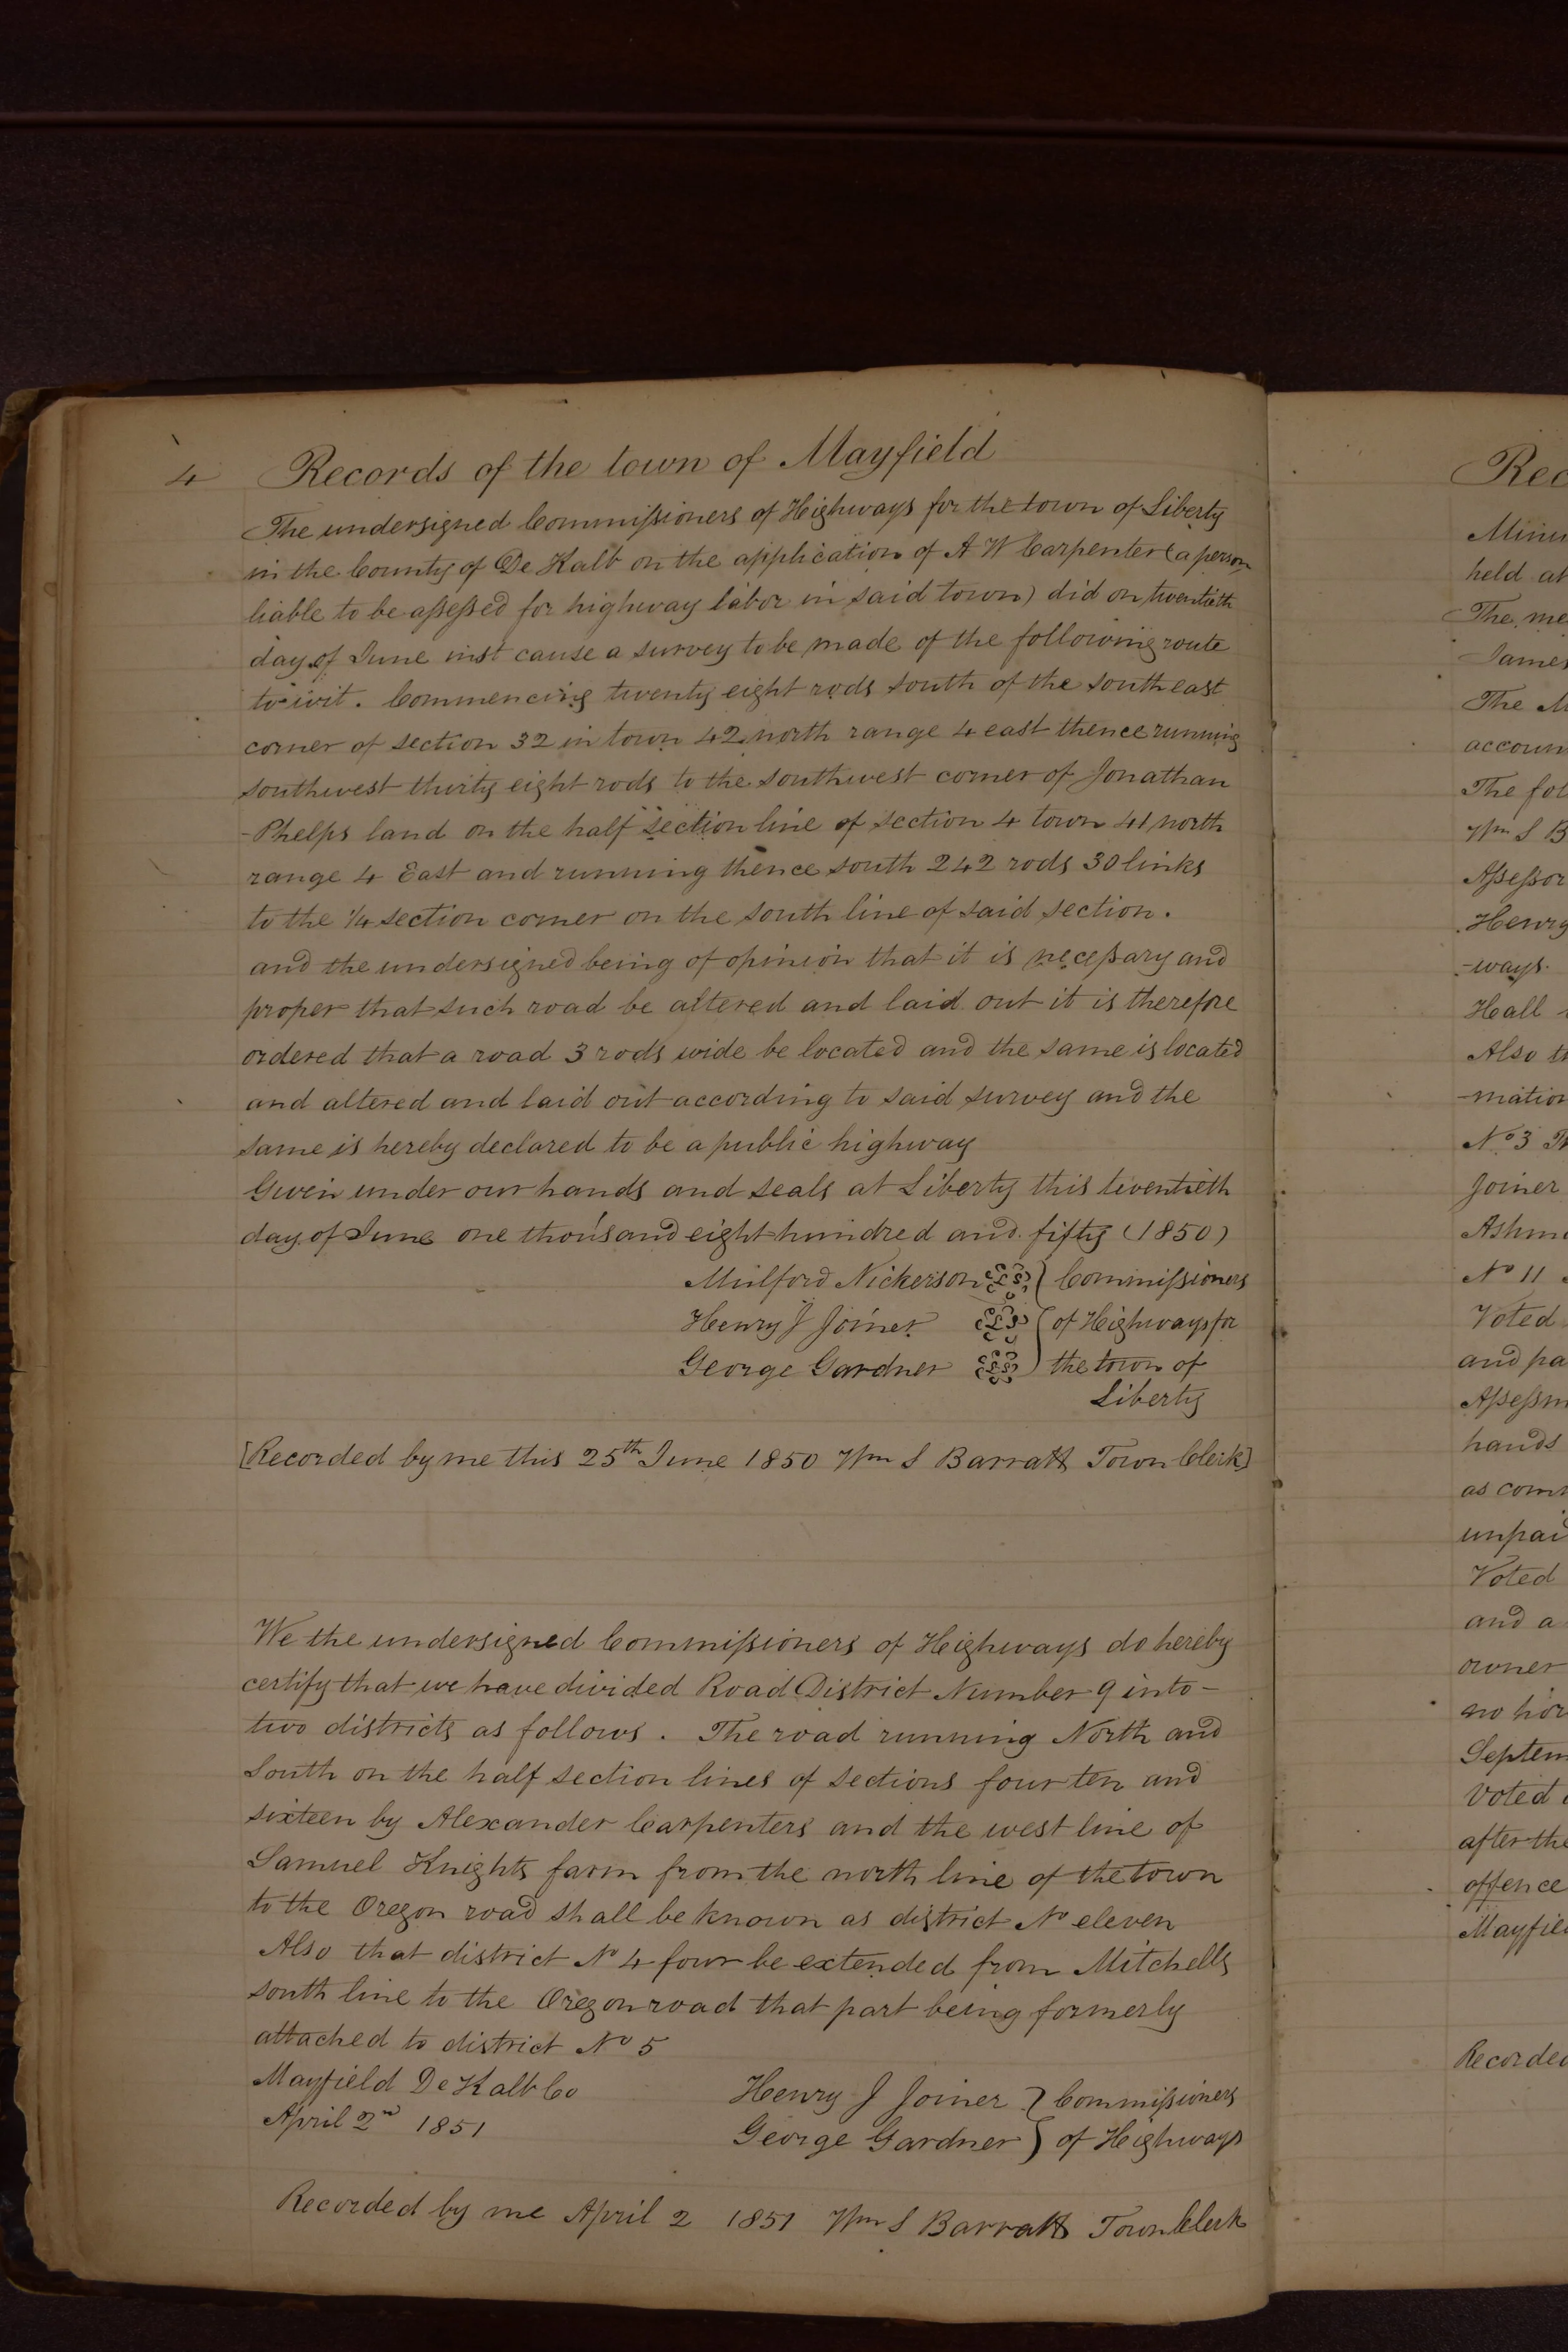 4 Records of the town of Mayfield
The undersigned Commissioners of Highways for the town of Liberty
in the County of De Kalb on the application of A W Carpenter (a person
liable to be assessed for highway labor in said town) did on twentieth
day of June inst cause a survey to be made of the following route
to wit. Commencing twenty eight rods south of the south east
corner of section 32 in town 42 north range 4 east thence running
southwest thirty eight rods to the southwest corner of Jonathan
-Phelps land on the half section line of section 4 town 41 north
range 4 East and running thence south 242 rods 30 links
to the 1/4 section corner on the south line of said section.
and the undersigned being of opinion that it is necessary and
proper that such road be altered and laid out it is therefore
ordered that a road 3 rods wide be located and the same is located
and altered and laid out according to said survey and the
same is hereby declared to be a public highway
Given under our hands and seals at Liberty this twentieth
day of June one thousand eight hundred and fifty (1850)
Mulford Nickerson LS } Commissioners
Henry J Joiner LS } of Highways for
George Gardner LS } the town of
Liberty
[Recorded by me this 25th June 1850 Wm S Barratt Town Clerk]
We the undersigned Commissioners of Highways do hereby
certify that we have divided Road District Number 9 into-
two districts as follows. The road running North and
South on the half section lines of sections four ten and
sixteen by Alexander Carpenters and the west line of
Samuel Knights farm from the north line of the town
to the Oregon road shall be known as district No eleven
Also that district No 4 four be extended from Mitchells
south line to the Oregon road that part being formerly
attached to district No 5
Mayfield De Kalb Co
April 2nd 1851
Henry J Joiner } Commissioners
George Gardner } of Highways
Recorded by me April 2 1851 Wm S Barratt Town Clerk
Rec
Minu
held at
The me
James
The M
accoun
The fol
Wm S B
Assessor
Henry
-ways.
Hall
Also t
-mation
No 3 T
Joiner
Ashm
No 11
Voted
and pa
Assessm
hands
as com
unpai
Voted
and a
owner
no hor
Septem
Voted
after the
offence
Mayfiel
Recorded